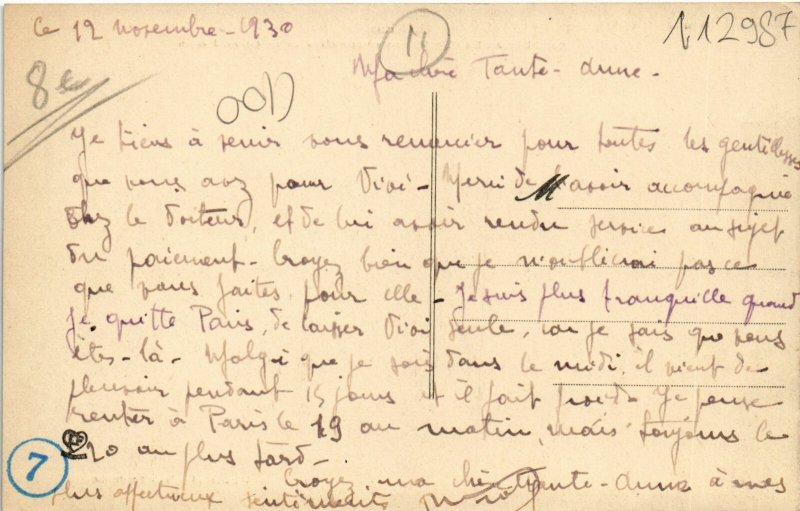 Ce 12 novembre - 1930
11
112987
8
00
Ma chère Tante - Anne -
Je tiens à venir vous remercier pour toutes les gentillesses
que vous avez pour Vivi - Merci de l'avoir accompagnée
chez le Docteur, et de lui avoir rendu service au sujet
du paiement - Croyez bien que je n'oublierai pas ce
que vous faites pour elle - Je suis plus tranquille quand
je quitte Paris, de laisser Vivi seule, car je sais que vous
êtes - là - Malgré que je sois dans le midi, il vient de
pleuvoir pendant 15 jours et il fait froid - Je pense
rentrer à Paris le 19 au matin, mais toujours le
20 au plus tard -
7
Croyez, ma chère Tante - Anne à mes
plus affectueux sentiments